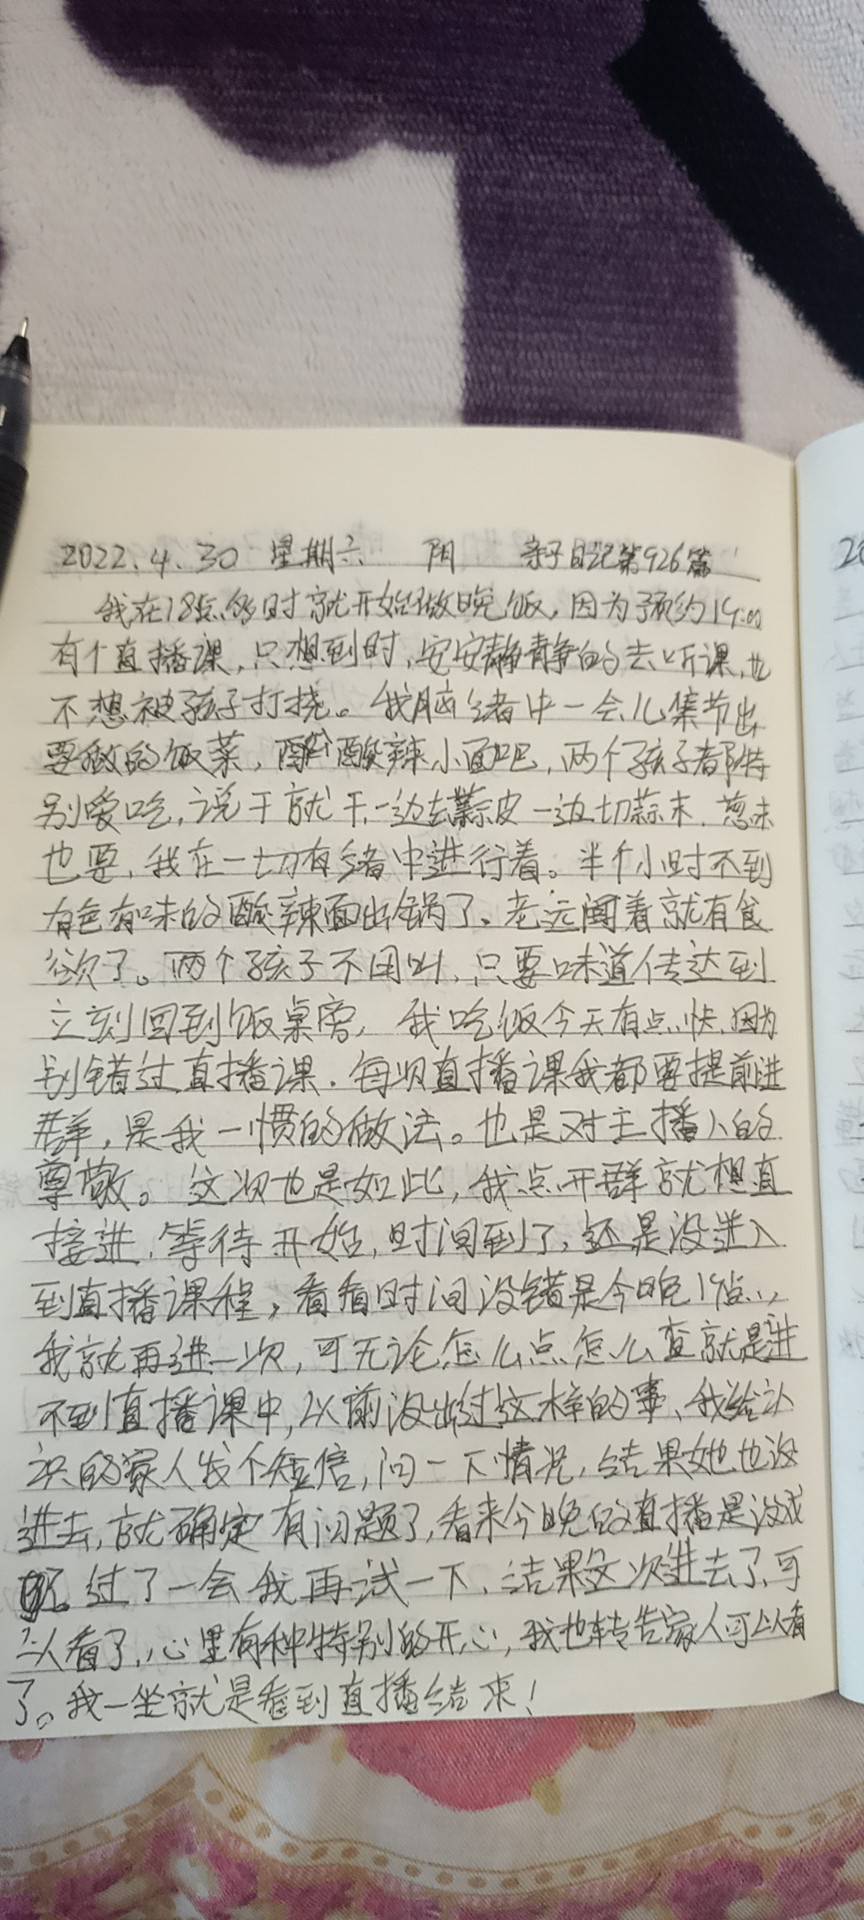 2022.4.30 星期六 阴 亲子日记第926篇
我在18点的时就开始做晚饭,因为预约19:00
有个直播课,只想到时,安安静静的去听课,也
不想被孩子打挠。我脑绪中一会儿集节出
要做的饭菜,酸辣小面吧,两个孩子都特
别爱吃,说干就干,一边去蒜皮一边切蒜末,葱末
也要,我在一切有绪中进行着。半个小时不到
有色有味的酸辣面出锅了、老远闻着就有食
欲了。两个孩子不用叫,只要味道传达到
立刻回到饭桌旁,我吃饭今天有点快,因为
别错过直播课.每次直播课我都要提前进
群,是我一惯的做法。也是对主播人的
尊敬。这次也是如此,我点开群就想直
接进,等待开始,时间到了,还是没进入
到直播课程,看看时间没错是今晚19点,
我就再进一次,可无论怎么点怎么查就是进
不到直播课中,以前没出过这样的事、我给认
识的家人发个短信,问一下情况,结果她也没
进去,就确定有问题了,看来今晚的直播是没戏
了。过了一会我再试一下,结果这次进去了,可
以看了,心里有种特别的开心,我也转告家人可以看
了。我一坐就是看到直播结束!
20